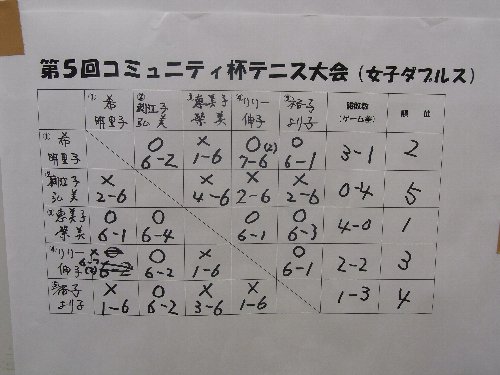 第5回コミュニティ杯テニス大会（女子ダブルス）
① 希 明里子 ② 江子 弘美 ③ 恵美子 榮美 ④ リリー 伸子 ⑤ 子 より子 勝敗数 (ゲーム率) 順位
① 希 明里子 ○ 6-2 × 1-6 ○(2) 7-6 ○ 6-1 3-1 2
② 江子 弘美 × 2-6 × 4-6 × 2-6 × 2-6 0-4 5
③ 恵美子 榮美 ○ 6-1 ○ 6-4 ○ 6-1 ○ 6-3 4-0 1
④ リリー 伸子 × 6-7 (2) ○ 6-2 × 1-6 ○ 6-1 2-2 3
⑤ 子 より子 × 1-6 ○ 6-2 × 3-6 × 1-6 1-3 4